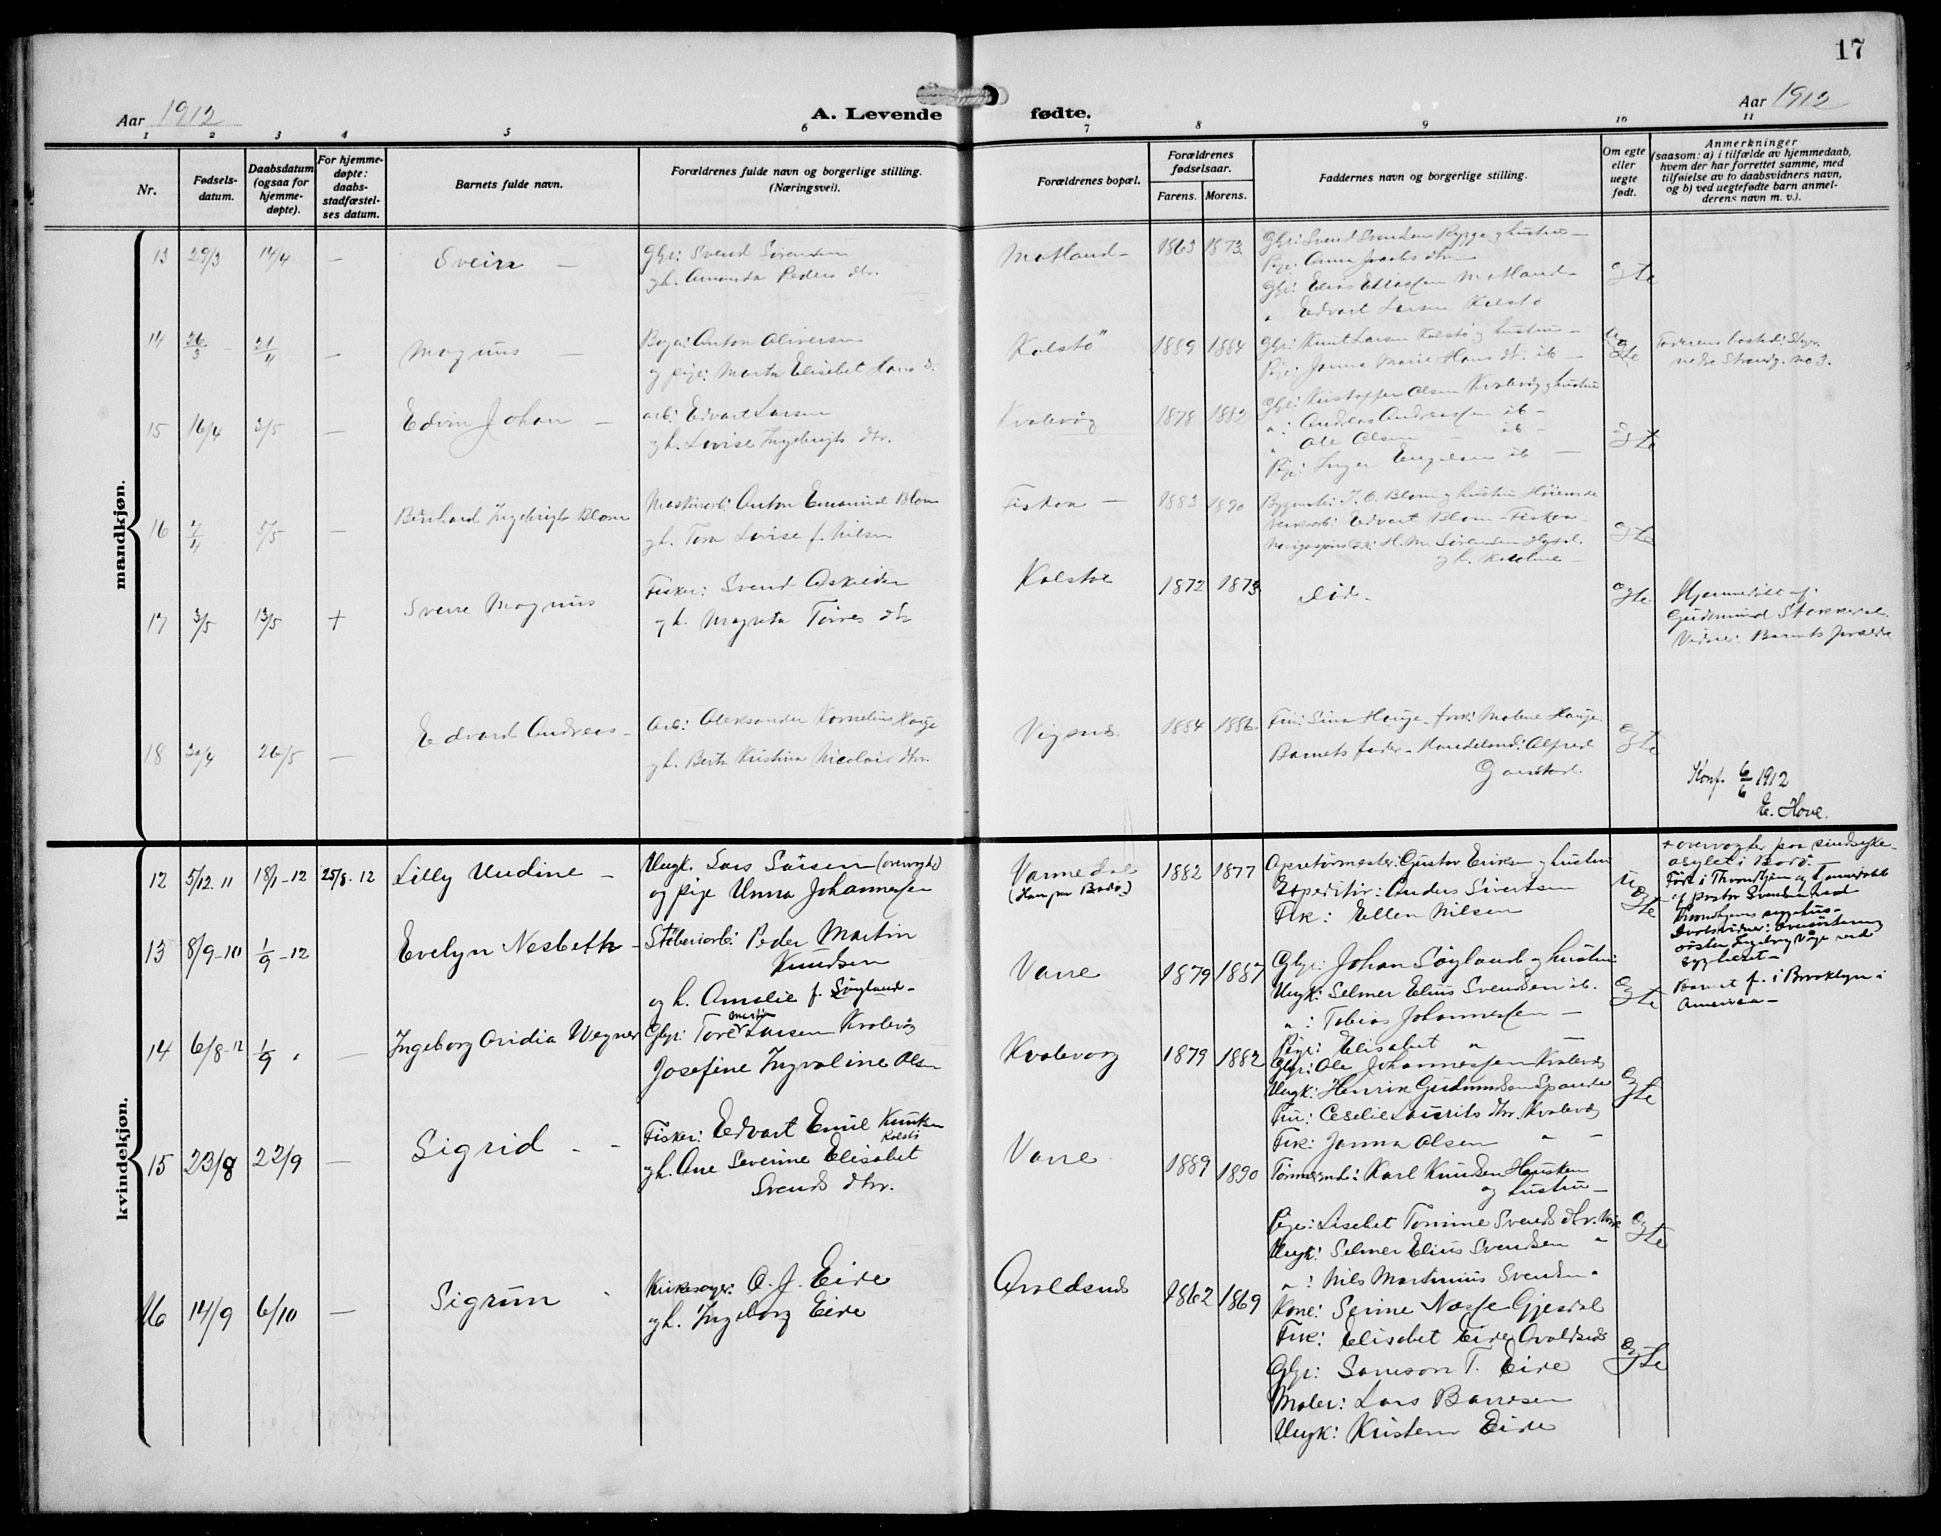 17
Aar 1912
A. Levende fødte.
Aar 1912
1 2 3 4 5 6 7 8 9 10 11
Nr.
Fødsels-
datum.
Daabsdatum
(ogsaa for
hjemme-
døpte).
For hjemme-
døpte:
daabs-
stadfæstel-
ses datum.
Barnets fulde navn.
Forældrenes fulde navn og borgerlige stilling.
(Næringsvei).
Forældrenes bopæl.
Forældrenes
fødselsaar.
Farens. Morens.
Faddernes navn og borgerlige stilling.
Om egte
eller
uegte
født.
Anmerkninger
(saasom: a) i tilfælde av hjemmedaab,
hvem der har forrettet samme, med
tilføielse av to daabsvidners navn,
og b) ved uegtefødte barn anmel-
derens navn m. v.).
mandkjøn.
13 29/3 14/4 — Svein —
Gbr: Svend Svendsen
g h. Amanda Peders dtr.
Matland — 1863 1873
Gbr: Svend Svendsen Rygge g hustru —
Pige: Anna Jacobs dtr —
Gbr: Elias Eliassen Matland —
" Edvart Larsen Kolstø
Egte
14 26/3 21/4 — Magnus —
Anton Oliversen
og pige: Marta Elisebet Hans d.
Kolstö 1889 1884
Gbr: Knut Larsen Kolstø g hustru —
Pige: Janna Marie Hans dtr. ib —
Uegte
Faderens bosted: Stav.
nedre Strandg. no 3.
15 16/4 3/5 — Edvin Johan —
arb: Edvart Larsen
g h. Lovise Ingebrigts dtr.
Kvalevåg 1878 1882
Gbr: Kristoffer Olsen Kvalevåg g hustru
" : Andreas Andreassen ib —
" Ole Olsen — ib —
Pige: Inger Engelsen ib —
Egte
16 7/4 5/5 — Bernhard Ingebrigt Blom
Maskinarb: Anton Emanuel Blom
g h. Tora Lovise f. Nilsen
Fiskaa — 1883 1890
Edvart Blom Fiskaa —
H. M. Sörensen
g h. Karoline —
Egte
17 3/5 13/5 + Sverre Magnus
Fisker: Svend Askildsen
g h. Magreta Torres dtr
Kolstoe 1872 1873
did.
Egte
Hjemmedöbt af:
Gudmund Stakkestad.
Vidner: Barnets foreldre
18 30/4 26/5 — Edvard Andreas —
Arb: Aleksander Kornelius Hauge
g h. Berta Kristina Nicolais dtr.
Vigsnes 1884 1886
Fru: Sina Hauge — frøk: Malene Hauge
Barnets fader — Handelsmd: Alfred
Gaustad.
Egte
Konf. 6/6 1912
E. Hove.
kvindekjøn.
12 5/12 11 18/1 - 12 25/8 - 12 Lilly Undine —
Ungk. Lars Larsen (overvogter)
og pige Unna Johannessen
Varnedal
(Han paa Bodø)
1882 1877
Gustav Eriksen g hustru
Expeditör: Anders Sivertsen
Frk: Ellen Nilsen
Uegte
+ overvogter paa sindsyke-
asylet i Bodö. —
Född i Throndhjem og hjemmedöbt
af pastor Svendsen ved
Throndhjems sygehus —
Daabsvidner: Oversösteren og
söster Ingeborg Våge ved
sygehuset —
13 8/9 - 10 1/9 - 12 Evelyn Nesbeth —
Stöberiarb: Peder Martin
Knudsen
og h. Amalie f. Søyland —
Vaare 1879 1887
Gbr: Johan Søyland g hustru
Ungk: Selmer Elius Svendsen ib.
" : Tobias Johannessen —
Pige: Elisabet " —
Egte
Barnet f. i Brooklyn i
America —
14 6/8 - 12 1/9 " — Ingeborg Ovidia Wegner
Gbr: Tore Martin Larsen Kvalevåg
Josefine Ingvaline Olsen
Kvalevaag 1879 1882
Gbr: Ole Johannessen Kvalevåg
Ungk: Henrik Gudmundsen Spanne
Fru: Ceselie Laurits dtr. Kvalevåg
Frk: Janna Olsen " —
Egte
15 23/8 22/9 — Sigrid —
Fisker: Edvart Emil Knutsen
Kolstö
g h. Ane Severine Elisabet
Svends dtr.
Vaare 1889 1890
Tömmermd: Karl Knudsen Hausken
og hustru —
Pige: Lisebet Tomine Svends dtr. Vare
Ungk: Selmer Elius Svendsen "
" : Nils Martinius Svendsen "
Egte
16 14/9 6/10 — Sigrun
Kirkesanger: O. J. Eide
g h. Ingeborg Eide
Avaldsnes 1862 1869
Kone: Serine Næsse Gjesdal
Frk: Elisabet Eide Avaldsnes
Gbr: Samson T. Eide
Maler: Lars Baardsen
Ungk: Kristen Eide
Egte